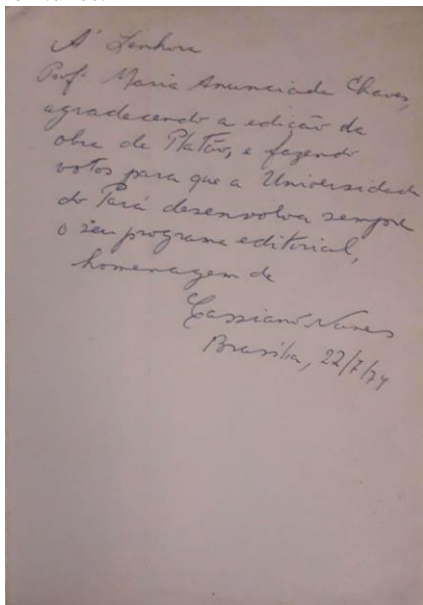 A' Senhora
Profª Maria Anunciada Chaves,
agradecendo a edição da
obra de Platão, e fazendo
votos para que a Universidade
do Pará desenvolva sempre
o seu programa editorial,
homenagem de
Cassiano Nunes
Brasília, 22/7/74